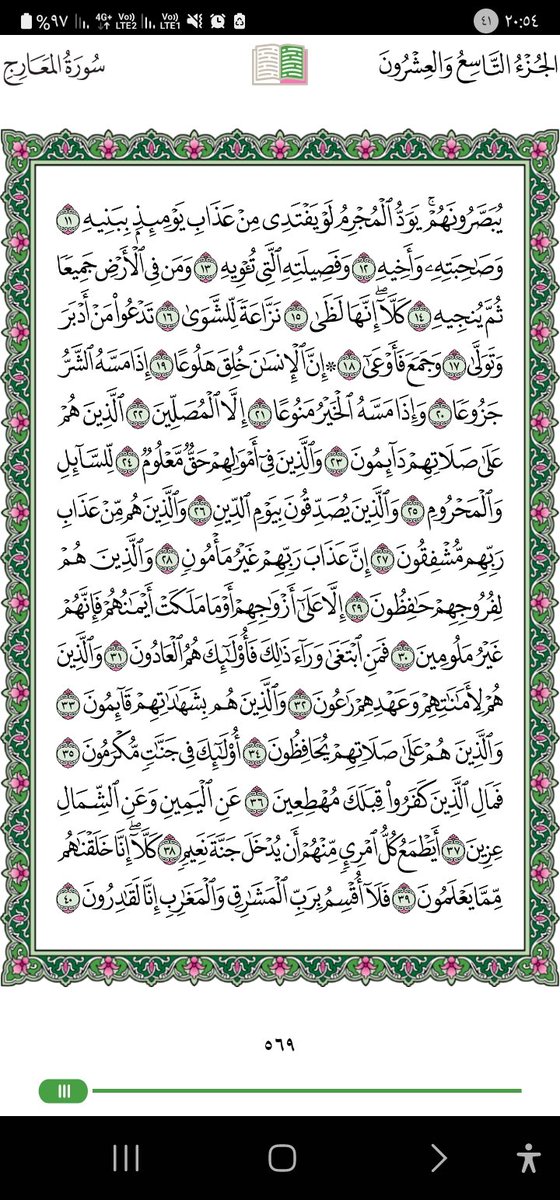 ٢٠:٥٤ ٤١ %٩٧ 4G+ Vo)) LTE2 Vo)) LTE1
الجُزْءُ التَّاسِعُ وَالعِشْرُونَ سُورَةُ المَعَارِجِ
يُبَصَّرُونَهُمْۚ يَوَدُّ ٱلْمُجْرِمُ لَوْ يَفْتَدِى مِنْ عَذَابِ يَوْمِئِذٍۭ بِبَنِيهِ ١١
وَصَٰحِبَتِهِۦ وَأَخِيهِ ١٢ وَفَصِيلَتِهِ ٱلَّتِى تُـْٔوِيهِ ١٣ وَمَن فِى ٱلْأَرْضِ جَمِيعًا
ثُمَّ يُنجِيهِ ١٤ كَلَّآۖ إِنَّهَا لَظَىٰ ١٥ نَزَّاعَةً لِّلشَّوَىٰ ١٦ تَدْعُوا۟ مَنْ أَدْبَرَ
وَتَوَلَّىٰ ١٧ وَجَمَعَ فَأَوْعَىٰٓ ١٨ ۞ إِنَّ ٱلْإِنسَٰنَ خُلِقَ هَلُوعًا ١٩ إِذَا مَسَّهُ ٱلشَّرُّ
جَزُوعًا ٢٠ وَإِذَا مَسَّهُ ٱلْخَيْرُ مَنُوعًا ٢١ إِلَّا ٱلْمُصَلِّينَ ٢٢ ٱلَّذِينَ هُمْ
عَلَىٰ صَلَاتِهِمْ دَآئِمُونَ ٢٣ وَٱلَّذِينَ فِىٓ أَمْوَٰلِهِمْ حَقٌّ مَّعْلُومٌ ٢٤ لِّلسَّآئِلِ
وَٱلْمَحْرُومِ ٢٥ وَٱلَّذِينَ يُصَدِّقُونَ بِيَوْمِ ٱلدِّينِ ٢٦ وَٱلَّذِينَ هُم مِّنْ عَذَابِ
رَبِّهِم مُّشْفِقُونَ ٢٧ إِنَّ عَذَابَ رَبِّهِمْ غَيْرُ مَأْمُونٍ ٢٨ وَٱلَّذِينَ هُمْ
لِفُرُوجِهِمْ حَٰفِظُونَ ٢٩ إِلَّا عَلَىٰٓ أَزْوَٰجِهِمْ أَوْ مَا مَلَكَتْ أَيْمَٰنُهُمْ فَإِنَّهُمْ
غَيْرُ مَلُومِينَ ٣٠ فَمَنِ ٱبْتَغَىٰ وَرَآءَ ذَٰلِكَ فَأُو۟لَٰٓئِكَ هُمُ ٱلْعَادُونَ ٣١ وَٱلَّذِينَ
هُمْ لِأَمَٰنَٰتِهِمْ وَعَهْدِهِمْ رَٰعُونَ ٣٢ وَٱلَّذِينَ هُم بِشَهَٰدَٰتِهِمْ قَآئِمُونَ ٣٣
وَٱلَّذِينَ هُمْ عَلَىٰ صَلَاتِهِمْ يُحَافِظُونَ ٣٤ أُو۟لَٰٓئِكَ فِى جَنَّٰتٍ مُّكْرَمُونَ ٣٥
فَمَالِ ٱلَّذِينَ كَفَرُوا۟ قِبَلَكَ مُهْطِعِينَ ٣٦ عَنِ ٱلْيَمِينِ وَعَنِ ٱلشِّمَالِ
عِزِينَ ٣٧ أَيَطْمَعُ كُلُّ ٱمْرِئٍ مِّنْهُمْ أَن يُدْخَلَ جَنَّةَ نَعِيمٍ ٣٨ كَلَّآۖ إِنَّا خَلَقْنَٰهُم
مِّمَّا يَعْلَمُونَ ٣٩ فَلَآ أُقْسِمُ بِرَبِّ ٱلْمَشَٰرِقِ وَٱلْمَغَٰرِبِ إِنَّا لَقَٰدِرُونَ ٤٠
٥٦٩